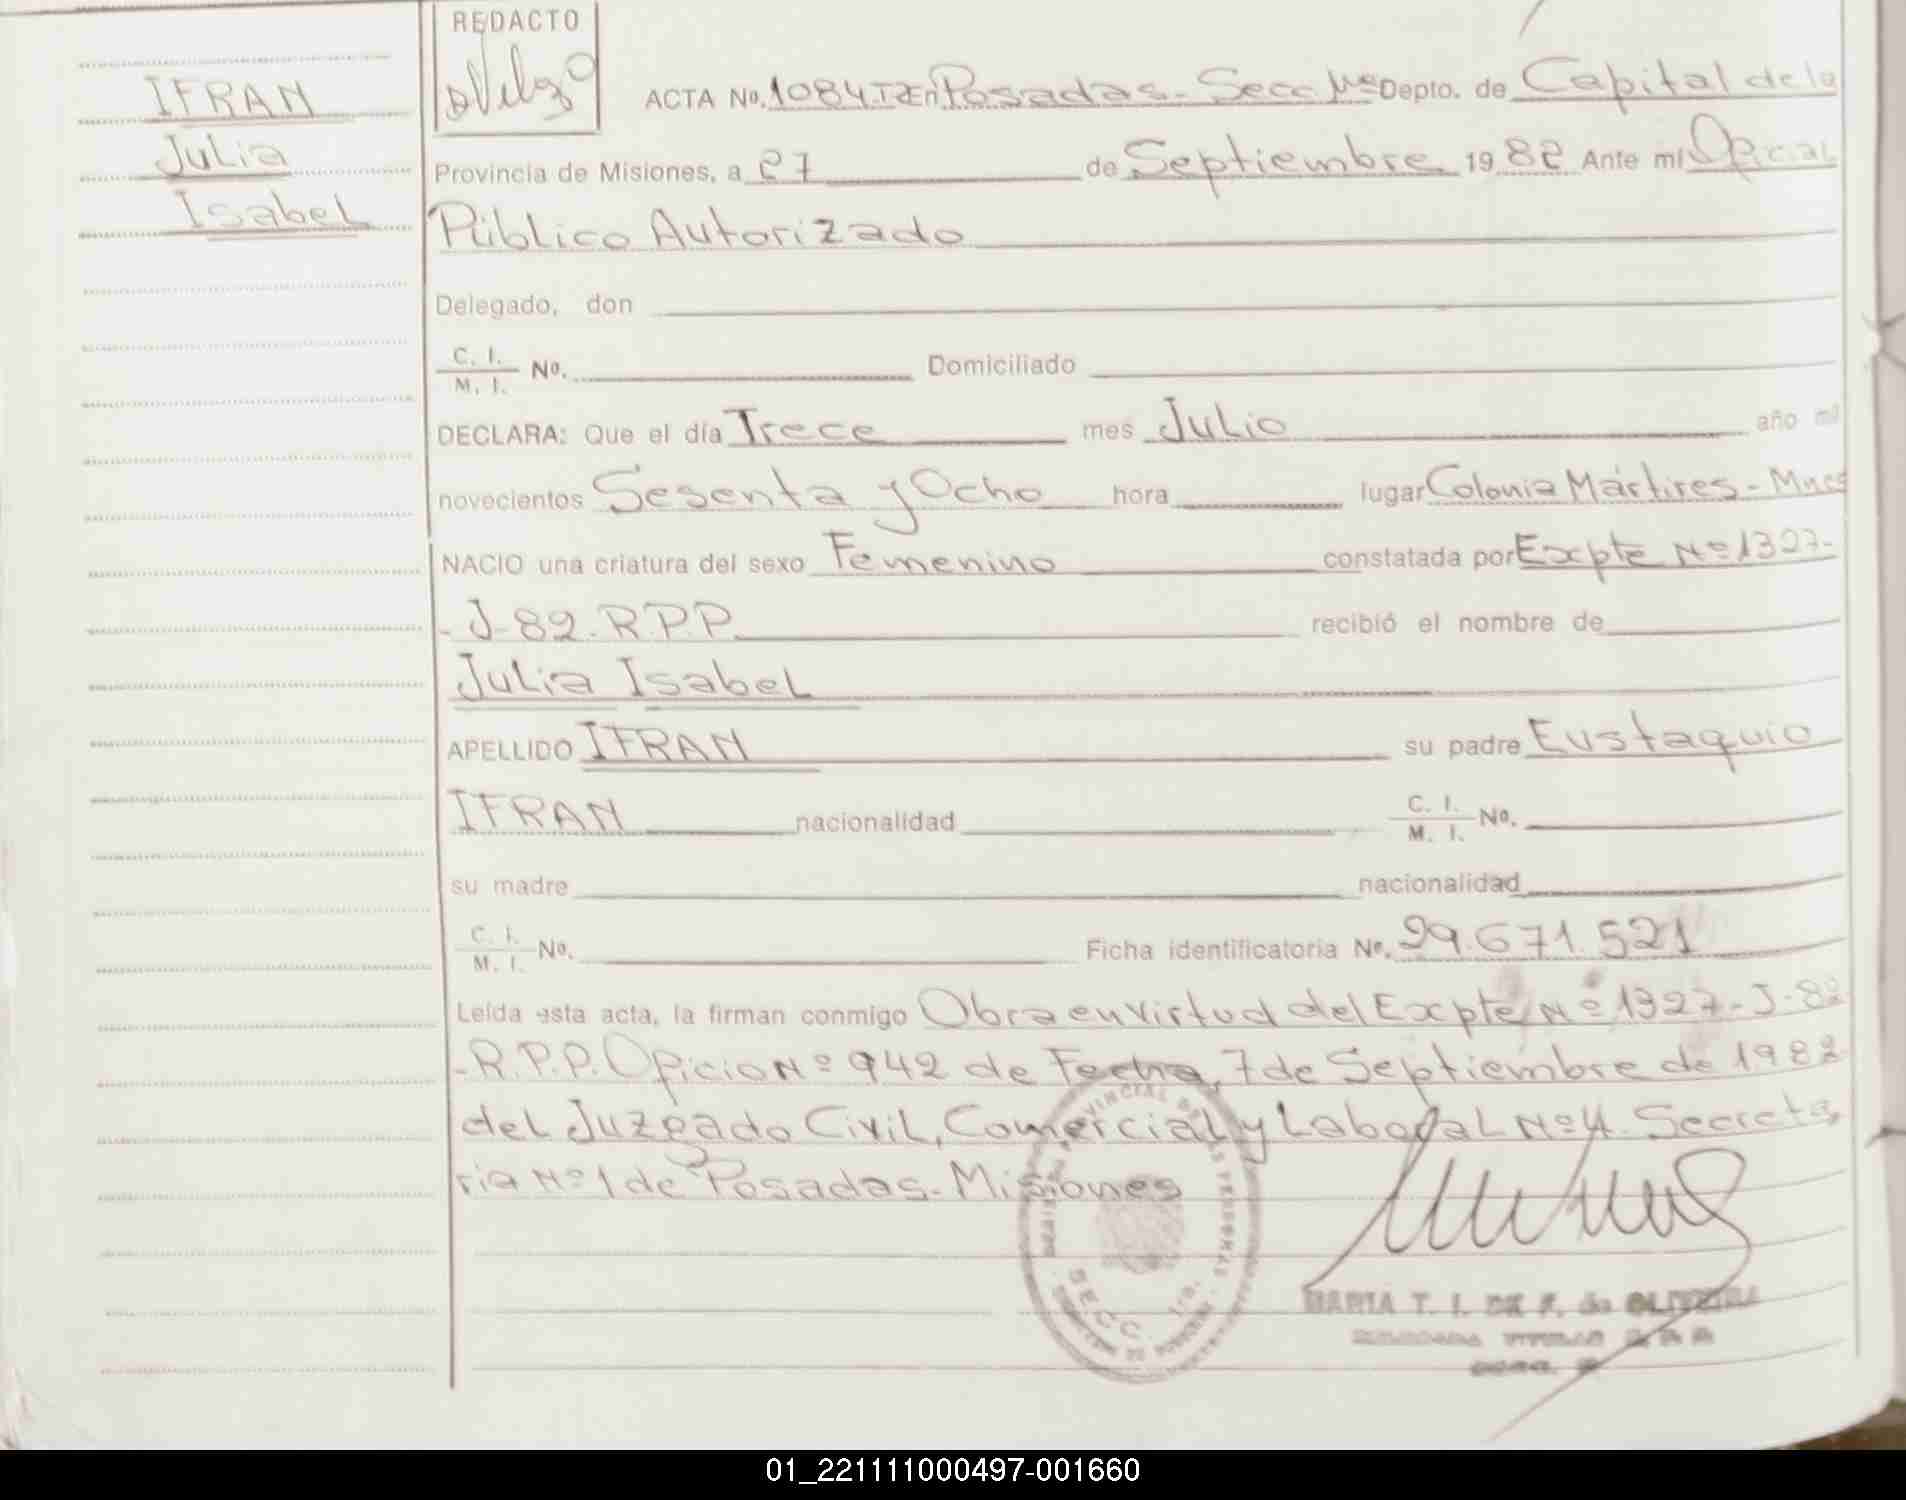 IFRAN
Julia
Isabel
REDACTO
ACTA No. 1084.T2 En Posadas - Secc. Depto. de Capital de la
Provincia de Misiones, a 27 de Septiembre 1982 Ante mi Oficial
Público Autorizado
Delegado, don
C. I.
M. I. No. Domiciliado
DECLARA: Que el día Trece mes Julio año mil
novecientos Sesenta y Ocho hora lugar Colonia Mártires - Mnes
NACIO una criatura del sexo Femenino constatada por Excpte Nº 1327-
- J-82. R.P.P. recibió el nombre de
Julia Isabel
APELLIDO IFRAN su padre Eustaquio
IFRAN nacionalidad C. I. M. I. No.
su madre nacionalidad
C. I.
M. I. No. Ficha identificatoria No. 29.671.521
Leída esta acta, la firman conmigo Obra en virtud del Excpte Nº 1327-J-82
-R.P.P. Oficio Nº 942 de Fecha, 7 de Septiembre de 1982
del Juzgado Civil, Comercial y Laboral Nº 4. Secreta
ria Nº 1 de Posadas - Misiones
SECC. 1ra.
MARIA T. I. DE F. de OLIVEIRA
01_221111000497-001660